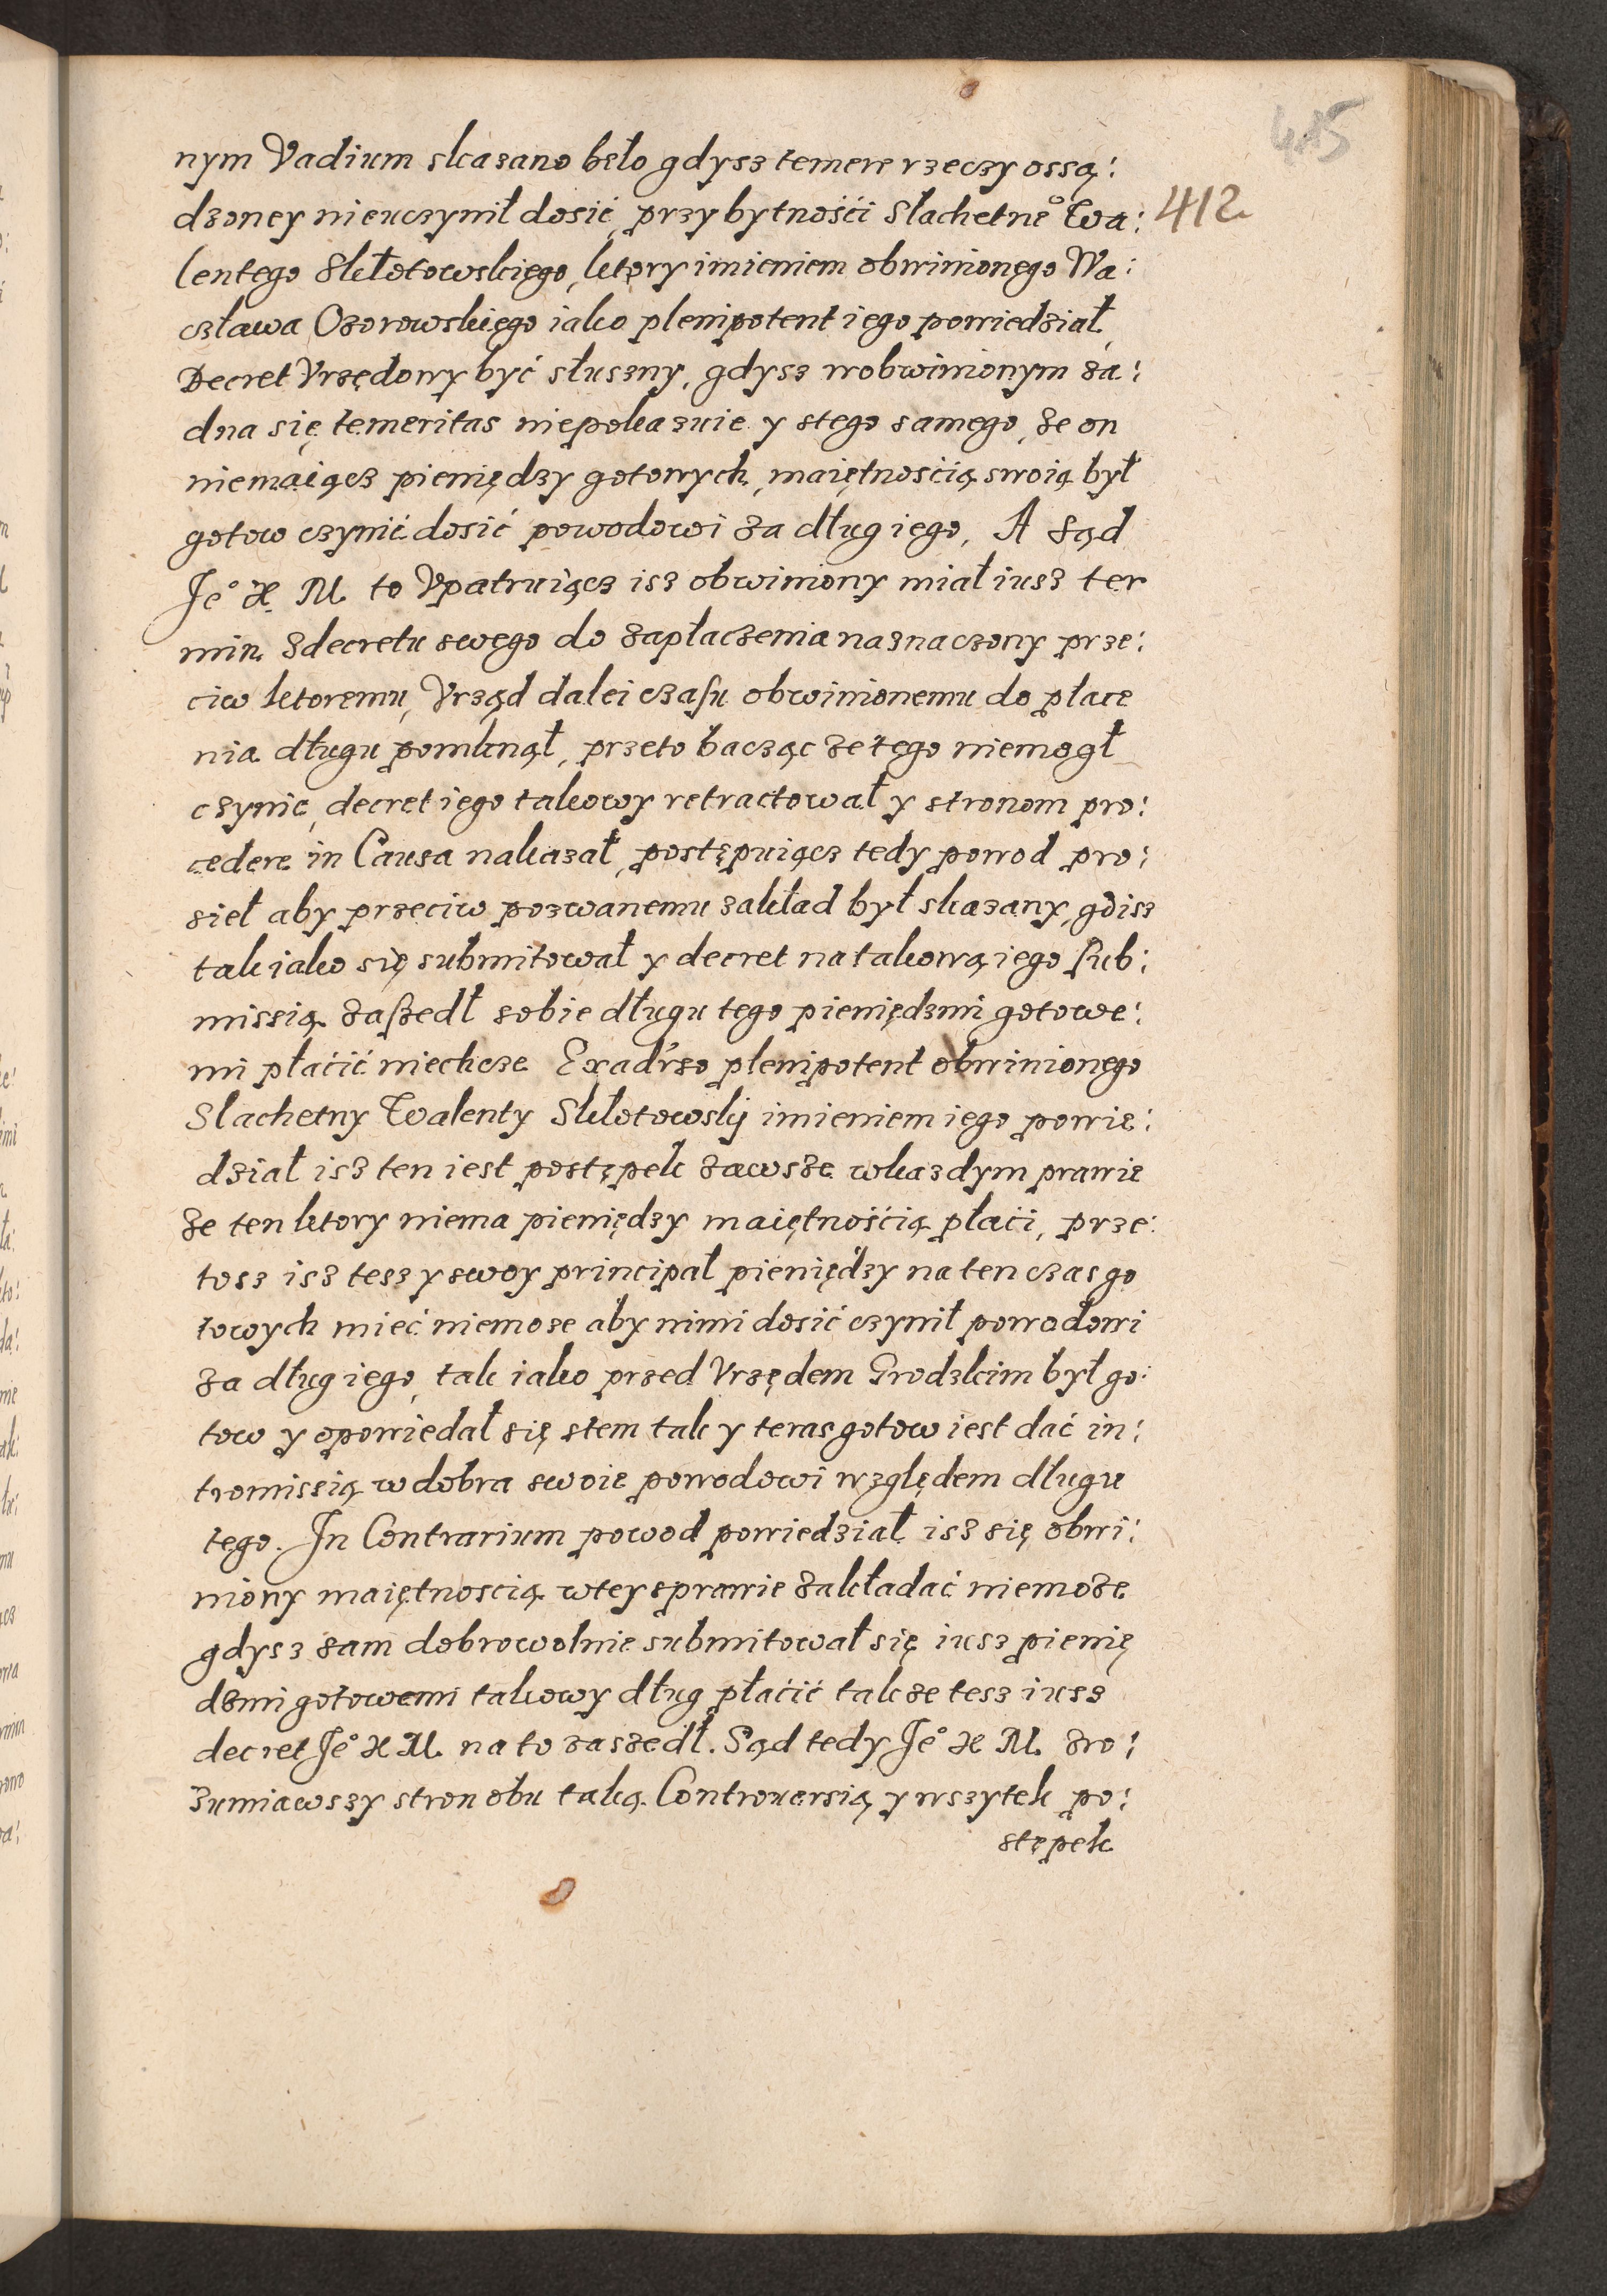 415
412
nym Vadium skazano było gdysz temere rzeczy ossą:
dzoney nieuczynił dosić, przy bytnośći Slachetne° Wa:
lentego Skłotowskięgo, ktory imieniem obwinionęgo Wa:
czława Ozorowskięgo iako plenipotent iego powiedział,
Decret Vrzędowy być słuszny, gdysz wobwinionym ża:
dna się temeritas niepokazuie y stego samego, że on
niemaiącz pieniędzy gotowych, maiętnośćią swoią był
gotow czynić dosić powodowi za dług iego, A sąd
Je° K. M. to Vpatruiącz isz obwiniony miał iusz ter
min zdecretu swęgo do zapłaczenia naznaczony prze:
ciw ktoremu, Vrząd dalei czasu obwinionemu do płace
nia długu pomknął, przeto bacząc że tęgo niemogł
czynic, decret iego takowy retractował y stronom pro:
cedere in Causa nakazał, postępuiącz tedy powod pro:
sieł aby przeciw pozwanemu zakład był skazany, gdisz
tak iako się submitował y decret na takową iego sub:
missią zaszedł sobie długu tego pieniędzmi gotowe:
mi płaćić niechcze. Exadrso plenipotent obwinionego
Slachetny Walenty Skłotowskÿ imieniem iego powie:
dział isz ten iest postępek zawsze wkazdym prawie
że ten ktory niema pieniędzy maiętnośćią płaći, prze:
tosz isz tesz y swoy principal pieniędzy na ten czas go
towych mieć niemoze aby nimi dosić czynił powodowi
za dług iego, tak iako przed Vrzędem Grodzkim był go:
tow y opowiedał się stem tak y teras gotow iest dać in:
tromissią w dobra swoie powodowi względem długu
tego. In Contrarium powod powiedział isz się obwi:
niony maiętnoscią wtey sprawie zakładać niemoże
gdysz sam dobrowolnie submitował się iusz pienię
dzmi gotowemi takowy dług płaćić tak że tesz iusz
decret Je° K M. na to zaszedł. Sąd tedy Je° K M. zro:
zumiawszy stron obu taką Controuersią y wszytek po:
stępek